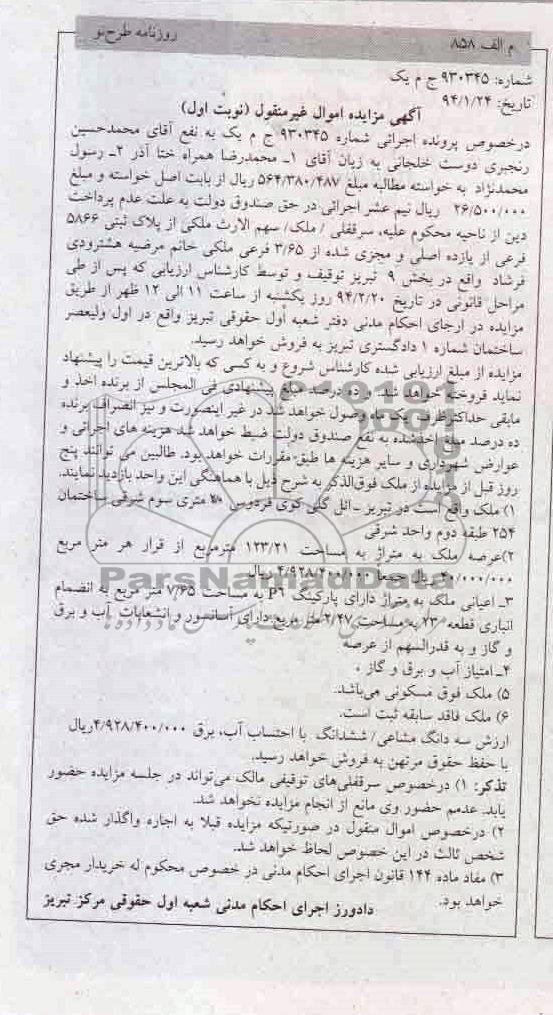 روزنامه طرح‌نو
م الف ۸۵۸
شماره: ۹۳۰۳۴۵ ج م یک
تاریخ: ۹۴/۱/۲۴
آگهی مزایده اموال غیرمنقول (نوبت اول)
درخصوص پرونده اجرائی شماره ۹۳۰۳۴۵ ج م یک به نفع آقای محمدحسین
رنجبری دوست خلجانی به زیان آقای ۱ـ محمدرضا همراه ختا آذر ۲ـ رسول
محمدنژاد به خواسته مطالبه مبلغ ۵۶۴/۳۸۰/۴۸۷ ریال از بابت اصل خواسته و مبلغ
۲۶/۵۰۰/۰۰۰ ریال نیم عشر اجرائی در حق صندوق دولت به علت عدم پرداخت
دین از ناحیه محکوم علیه، سرقفلی / ملک/ سهم الارث ملکی از پلاک ثبتی ۵۸۶۶
فرعی از یازده اصلی و مجزی شده از ۳/۶۵ فرعی ملکی خانم مرضیه هشترودی
فرشاد واقع در بخش ۹ تبریز توقیف و توسط کارشناس ارزیابی که پس از طی
مراحل قانونی در تاریخ ۹۴/۲/۲۰ روز یکشنبه از ساعت ۱۱ الی ۱۲ ظهر از طریق
مزایده در ارجای احکام مدنی دفتر شعبه اول حقوقی تبریز واقع در اول ولیعصر
ساختمان شماره ۱ دادگستری تبریز به فروش خواهد رسید.
مزایده از مبلغ ارزیابی شده کارشناس شروع و به کسی که بالاترین قیمت را پیشنهاد
نماید فروخته خواهد شد. و ده درصد مبلغ پیشنهادی فی المجلس از برنده اخذ و
مابقی حداکثر ظرف یک ماه وصول خواهد شد در غیر اینصورت و نیز انصراف برنده
ده درصد مبلغ اخذشده به نفع صندوق دولت ضبط خواهد شد هزینه های اجرائی و
عوارض شهرداری و سایر هزینه ها طبق مقررات خواهد بود. طالبین می توانند پنج
روز قبل از مزایده از ملک فوق‌الذکر به شرح ذیل با هماهنگی این واحد بازدید نمایند.
۱) ملک واقع است در تبریز ـ ائل گلی کوی فردوس متری سوم شرقی ساختمان
۲۵۴ طبقه دوم واحد شرقی
۲)عرصه ملک به متراژ به مساحت ۱۲۳/۲۱ مترمربع از قرار هر متر مربع
۴۰/۰۰۰/۰۰۰ ریال جمعا ۴/۹۲۸/۴۰۰/۰۰۰ ریال
۳ـ اعیانی ملک به متراژ دارای پارکینگ P۶ به مساحت ۷/۶۵ متر مربع به انضمام
انباری قطعه ۲۳ به مساحت ۲/۲۷ متر مربع دارای آسانسور و انشعابات آب و برق
و گاز و به قدرالسهم از عرصه
۴ـ امتیاز آب و برق و گاز .
۵) ملک فوق مسکونی می‌باشد.
۶) ملک فاقد سابقه ثبت است.
ارزش سه دانگ مشاعی/ ششدانگ با احتساب آب، برق ۴/۹۲۸/۴۰۰/۰۰۰ریال
با حفظ حقوق مرتهن به فروش خواهد رسید.
تذکر: ۱) درخصوص سرقفلی‌های توقیفی مالک می‌تواند در جلسه مزایده حضور
یابد. عدمم حضور وی مانع از انجام مزایده نخواهد شد.
۲) درخصوص اموال منقول در صورتیکه مزایده قبلا به اجاره واگذار شده حق
شخص ثالث در این خصوص لحاظ خواهد شد.
۳) مفاد ماده ۱۴۴ قانون اجرای احکام مدنی در خصوص محکوم له خریدار مجری
خواهد بود.
دادورز اجرای احکام مدنی شعبه اول حقوقی مرکز تبریز
ParsNamadData